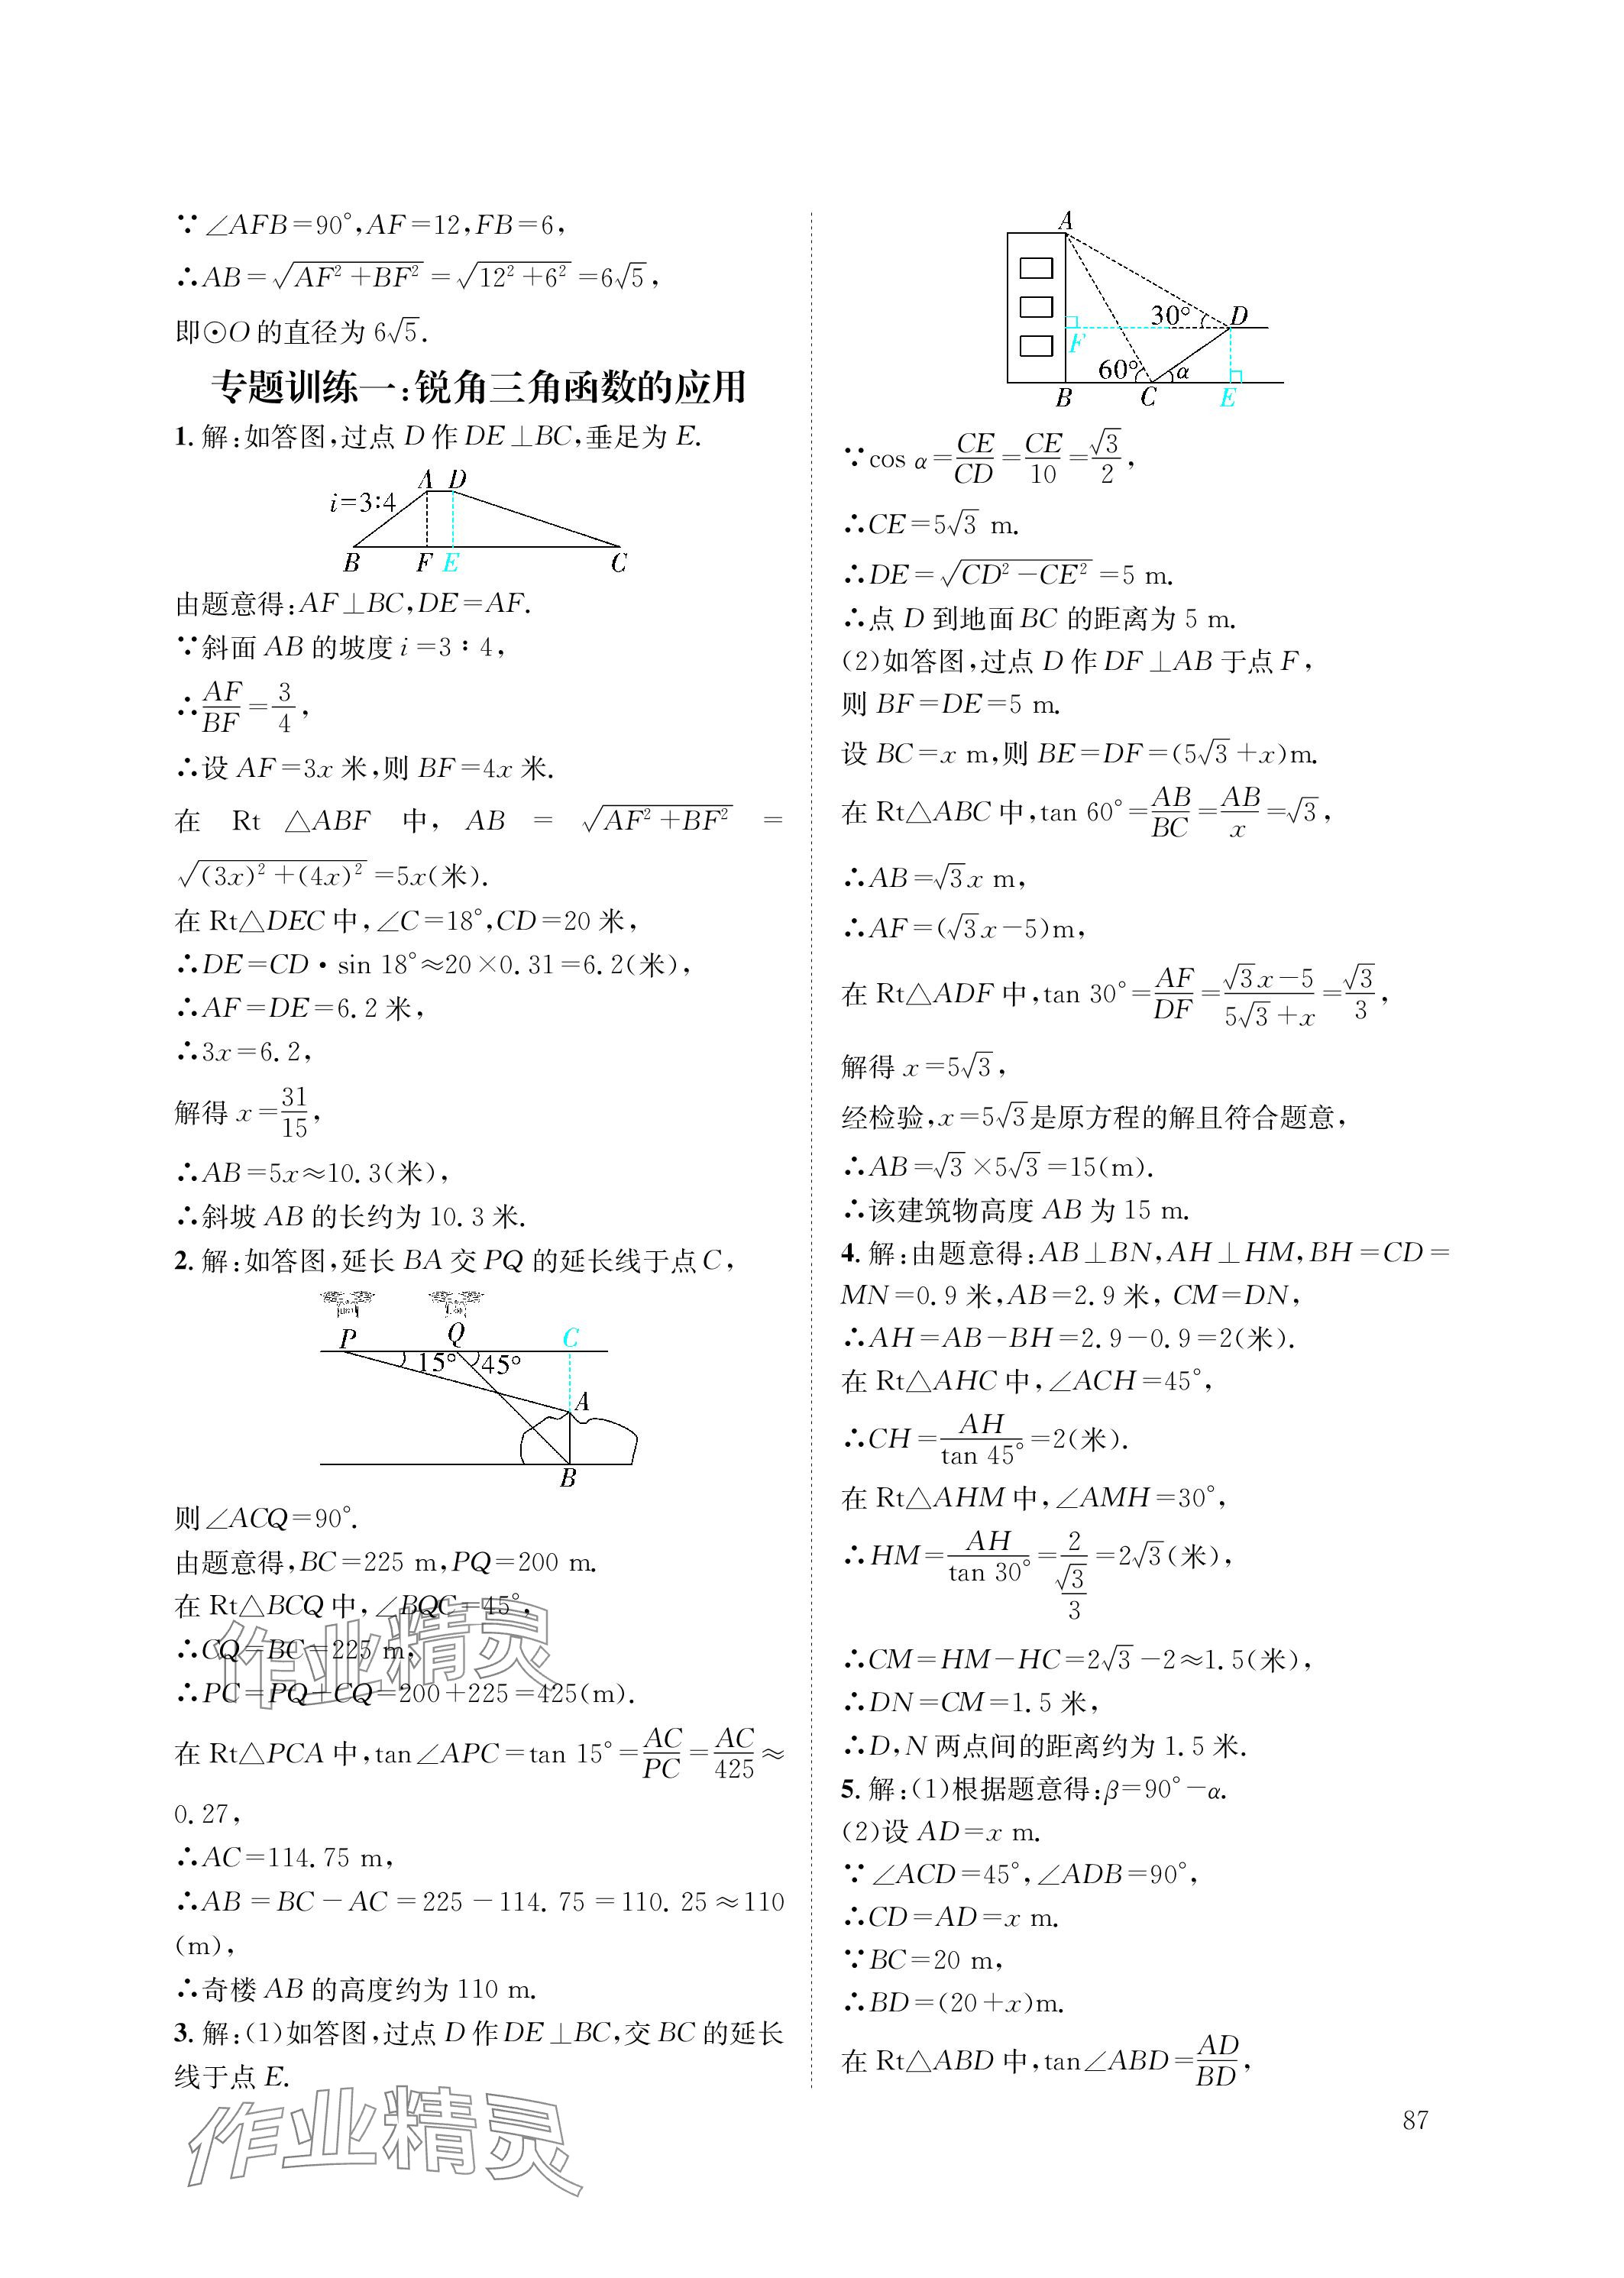 ∵∠AFB=90°,AF=12,FB=6,
∴AB=√(AF²+BF²)=√(12²+6²)=6√5,
即⊙O的直径为6√5.
专题训练一:锐角三角函数的应用
1. 解:如答图,过点D作DE⊥BC,垂足为E.
A D
i=3:4
B F E C
由题意得:AF⊥BC,DE=AF.
∵斜面AB的坡度i=3∶4,
∴AF/BF=3/4,
∴设AF=3x米,则BF=4x米.
在 Rt △ABF 中, AB = √(AF²+BF²) =
√((3x)²+(4x)²)=5x(米).
在Rt△DEC中,∠C=18°,CD=20米,
∴DE=CD·sin 18°≈20×0.31=6.2(米),
∴AF=DE=6.2米,
∴3x=6.2,
解得x=31/15,
∴AB=5x≈10.3(米),
∴斜坡AB的长约为10.3米.
2. 解:如答图,延长BA交PQ的延长线于点C,
P Q C
15° 45°
A
B
则∠ACQ=90°.
由题意得,BC=225 m,PQ=200 m.
在Rt△BCQ中,∠BQC=45°,
∴CQ=BC=225 m,
∴PC=PQ+CQ=200+225=425(m).
在Rt△PCA中,tan∠APC=tan 15°=AC/PC=AC/425≈
0.27,
∴AC=114.75 m,
∴AB=BC-AC=225-114.75=110.25≈110
(m),
∴奇楼AB的高度约为110 m.
3. 解:(1)如答图,过点D作DE⊥BC,交BC的延长
线于点E.
A
30° D
F
60° α
B C E
∵cos α=CE/CD=CE/10=√3/2,
∴CE=5√3 m.
∴DE=√(CD²-CE²)=5 m.
∴点D到地面BC的距离为5 m.
(2)如答图,过点D作DF⊥AB于点F,
则BF=DE=5 m.
设BC=x m,则BE=DF=(5√3+x)m.
在Rt△ABC中,tan 60°=AB/BC=AB/x=√3,
∴AB=√3x m,
∴AF=(√3x-5)m,
在Rt△ADF中,tan 30°=AF/DF=(√3x-5)/(5√3+x)=√3/3,
解得x=5√3,
经检验,x=5√3是原方程的解且符合题意,
∴AB=√3×5√3=15(m).
∴该建筑物高度AB为15 m.
4. 解:由题意得:AB⊥BN,AH⊥HM,BH=CD=
MN=0.9米,AB=2.9米, CM=DN,
∴AH=AB-BH=2.9-0.9=2(米).
在Rt△AHC中,∠ACH=45°,
∴CH=AH/tan 45°=2(米).
在Rt△AHM中,∠AMH=30°,
∴HM=AH/tan 30°=2/(√3/3)=2√3(米),
∴CM=HM-HC=2√3-2≈1.5(米),
∴DN=CM=1.5米,
∴D,N两点间的距离约为1.5米.
5. 解:(1)根据题意得:β=90°-α.
(2)设AD=x m.
∵∠ACD=45°,∠ADB=90°,
∴CD=AD=x m.
∵BC=20 m,
∴BD=(20+x)m.
在Rt△ABD中,tan∠ABD=AD/BD,
87
作业精灵
作业精灵